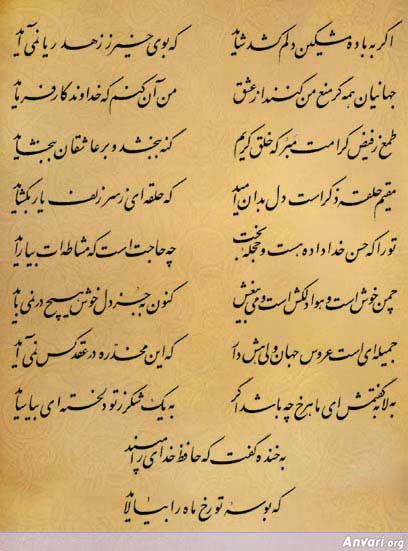 اگر به باده مشکین دلم کشد شاید که بوی خیر ز زهد ریا نمی آید
جهانیان همه گر منع من کنند از عشق من آن کنم که خداوندگار فرماید
طمع ز فیض کرامت مبر که خلق کریم گنه ببخشد و بر عاشقان ببخشاید
مقیم حلقه ذکر است دل بدان امید که حلقه ای ز سر زلف یار بگشاید
تو را که حسن خداداده هست و حجله بخت چه حاجت است که مشاطه ات بیاراید
چمن خوش است و هوا دلکش است و می بیغش کنون به جز دل خوش هیچ در نمی باید
جمیله ای است عروس جهان ولی هش دار که این مخدره در عقد کس نمی آید
به لابه گفتمش ای ماهرخ چه باشد اگر به یک شکر ز تو دلخسته ای بیاساید
به خنده گفت که حافظ خدای را مپسند
که بوسه تو رخ ماه را بیالاید
Anvari.org